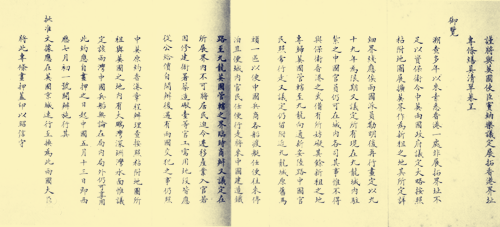 謹將與英國使臣竇納樂議定展拓香港界址
專條繕具清單恭呈
御覽
溯查多年以來素悉香港一處非展拓界址不
足以資保衛今中英兩國政府議定大略按照
粘附地圖展擴英界作為新租之地其所定詳
細界線應俟兩國派員勘明後再行畫定以九
十九年為限期又議定所有現在九龍城內駐
紮之中國官員仍可在城內各司其事惟不得
與保衛香港之武備有所妨礙其餘新租之地
專歸英國管轄至九龍向通新安陸路中國官
民照常行走又議定仍留附近九龍城原舊馬
頭一區以便中國兵商各船渡艇任便往來停
泊且便城內官民任便行走將來中國建造鐵
路至九龍英國管轄之界臨時商辦又議定在
所展界內不可將居民迫令遷移產業入官若
因修建衙署築造礮臺等官工需用地段皆應
從公給價自開辦後遇有兩國交犯之事仍照
中英原約香港章程辦理查按照粘附地圖所
租與英國之地內有大鵬灣深圳灣水面惟議
定該兩灣中國兵船無論在局內局外仍可享用
此約應自畫押之日起中國五月十三日即西
曆七月初一號開辦施行其
批准文據應在英國京城速行互換為此兩國大臣
將此專條畫押蓋印以昭信守